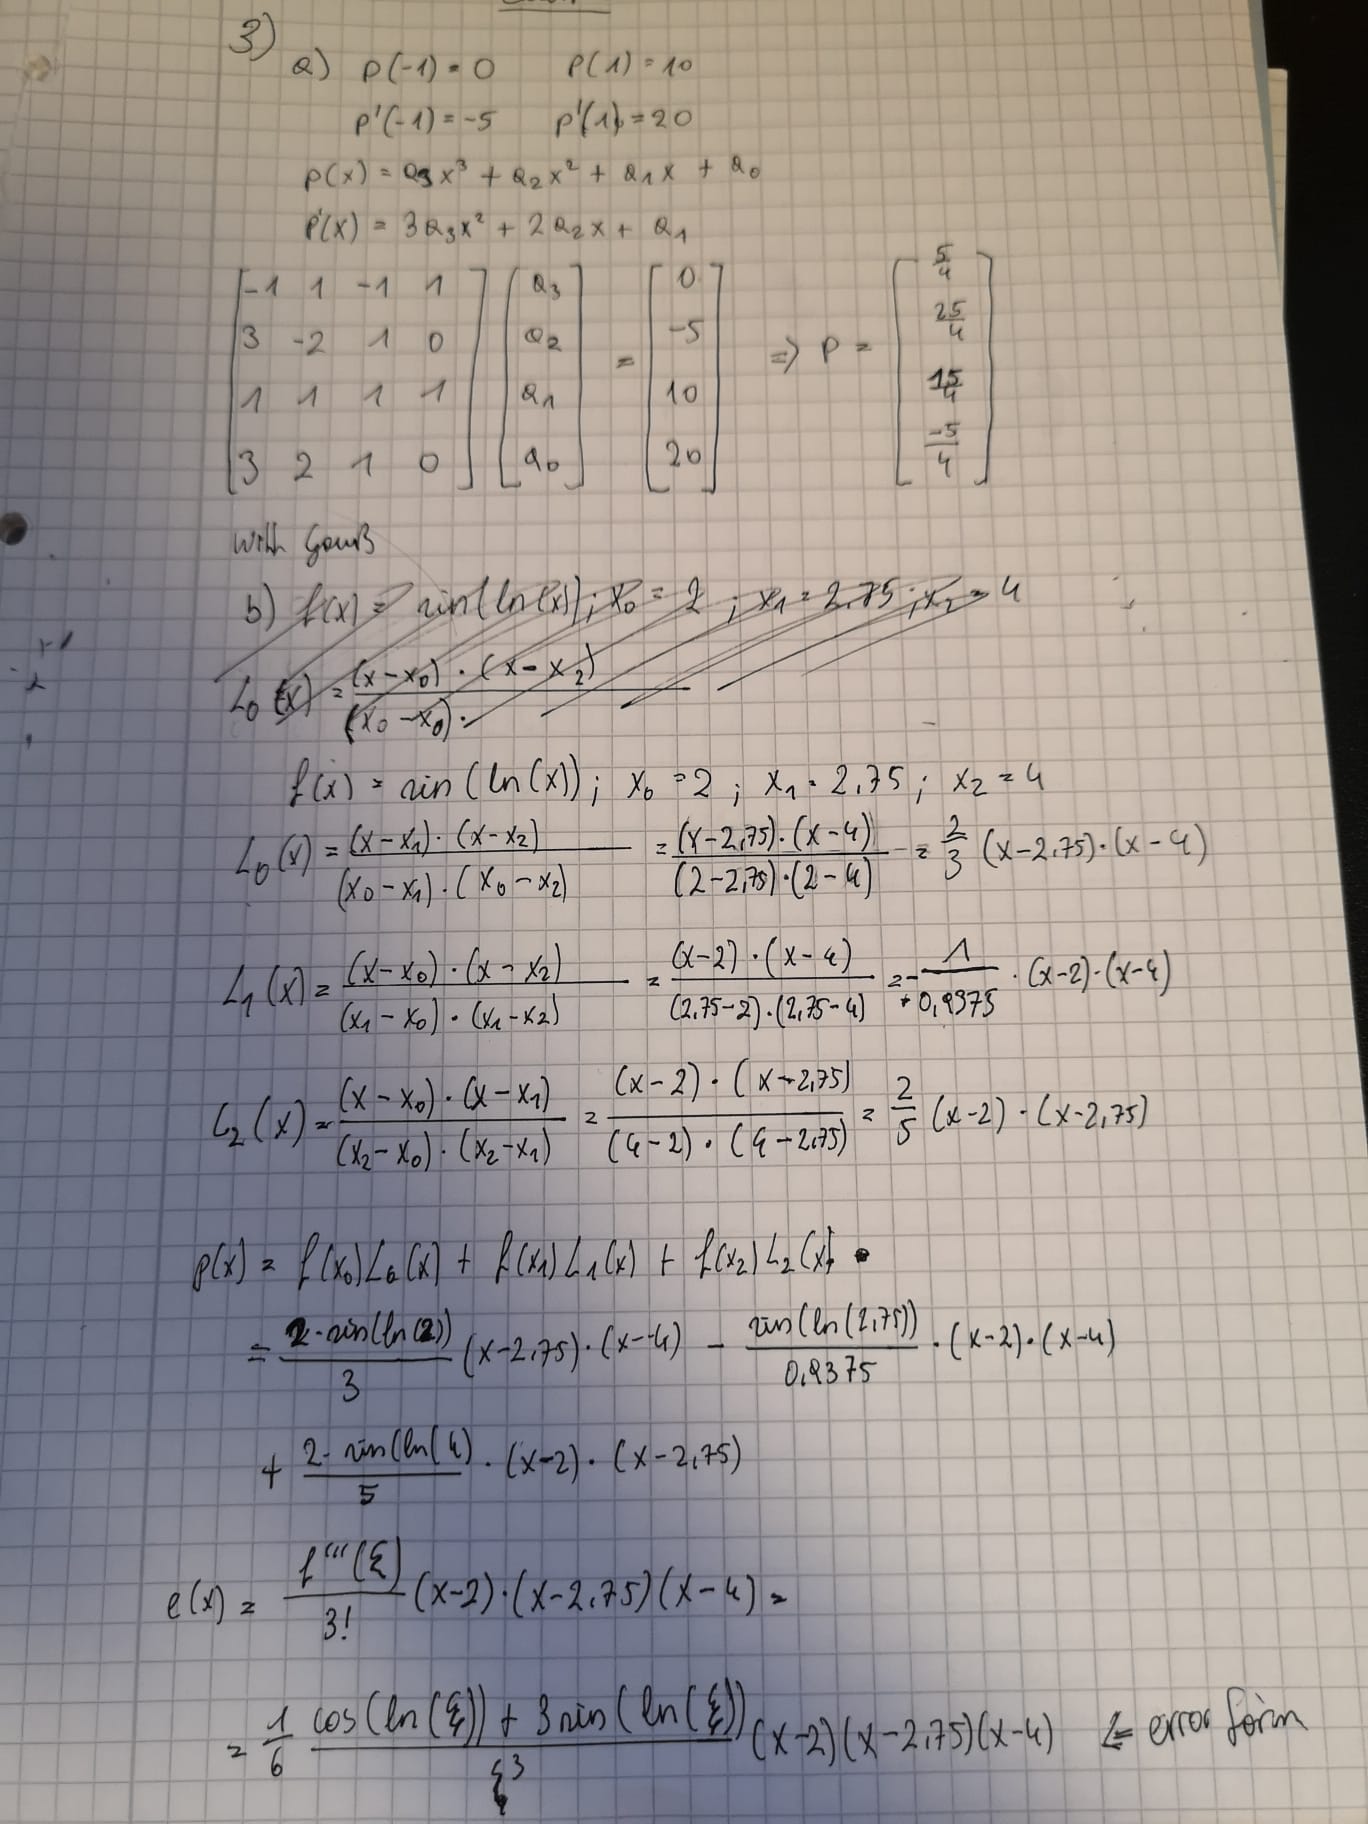 3)
a) p(-1) = 0 p(1) = 10
p'(-1) = -5 p'(1) = 20
p(x) = a₃x³ + a₂x² + a₁x + a₀
p'(x) = 3a₃x² + 2a₂x + a₁
[-1 1 -1 1] [a₃] [0] [5/4]
[3 -2 1 0] [a₂] = [-5] => p = [25/4]
[1 1 1 1] [a₁] [10] [15/4]
[3 2 1 0] [a₀] [20] [-5/4]
with Gauß
b) f(x) = sin(ln(x)); x₀ = 2 ; x₁ = 2,75 ; x₂ = 4
L₀(x) = (x-x₀)·(x-x₂) / (x₀-x₀)·
f(x) = sin(ln(x)); x₀ = 2 ; x₁ = 2,75 ; x₂ = 4
L₀(x) = (x-x₁)·(x-x₂) / (x₀-x₁)·(x₀-x₂) = (x-2,75)·(x-4) / (2-2,75)·(2-4) = 2/3 (x-2,75)·(x-4)
L₁(x) = (x-x₀)·(x-x₂) / (x₁-x₀)·(x₁-x₂) = (x-2)·(x-4) / (2,75-2)·(2,75-4) = - 1/0,9375 · (x-2)·(x-4)
L₂(x) = (x-x₀)·(x-x₁) / (x₂-x₀)·(x₂-x₁) = (x-2)·(x-2,75) / (4-2)·(4-2,75) = 2/5 (x-2)·(x-2,75)
p(x) = f(x₀)L₀(x) + f(x₁)L₁(x) + f(x₂)L₂(x)
= 2·sin(ln(2)) / 3 (x-2,75)·(x-4) - sin(ln(2,75)) / 0,9375 · (x-2)·(x-4)
+ 2·sin(ln(4) / 5 · (x-2)·(x-2,75)
e(x) = f'''(ξ) / 3! (x-2)·(x-2,75)(x-4) =
= 1/6 cos(ln(ξ)) + 3sin(ln(ξ)) / ξ³ (x-2)(x-2,75)(x-4) ⇐ error form